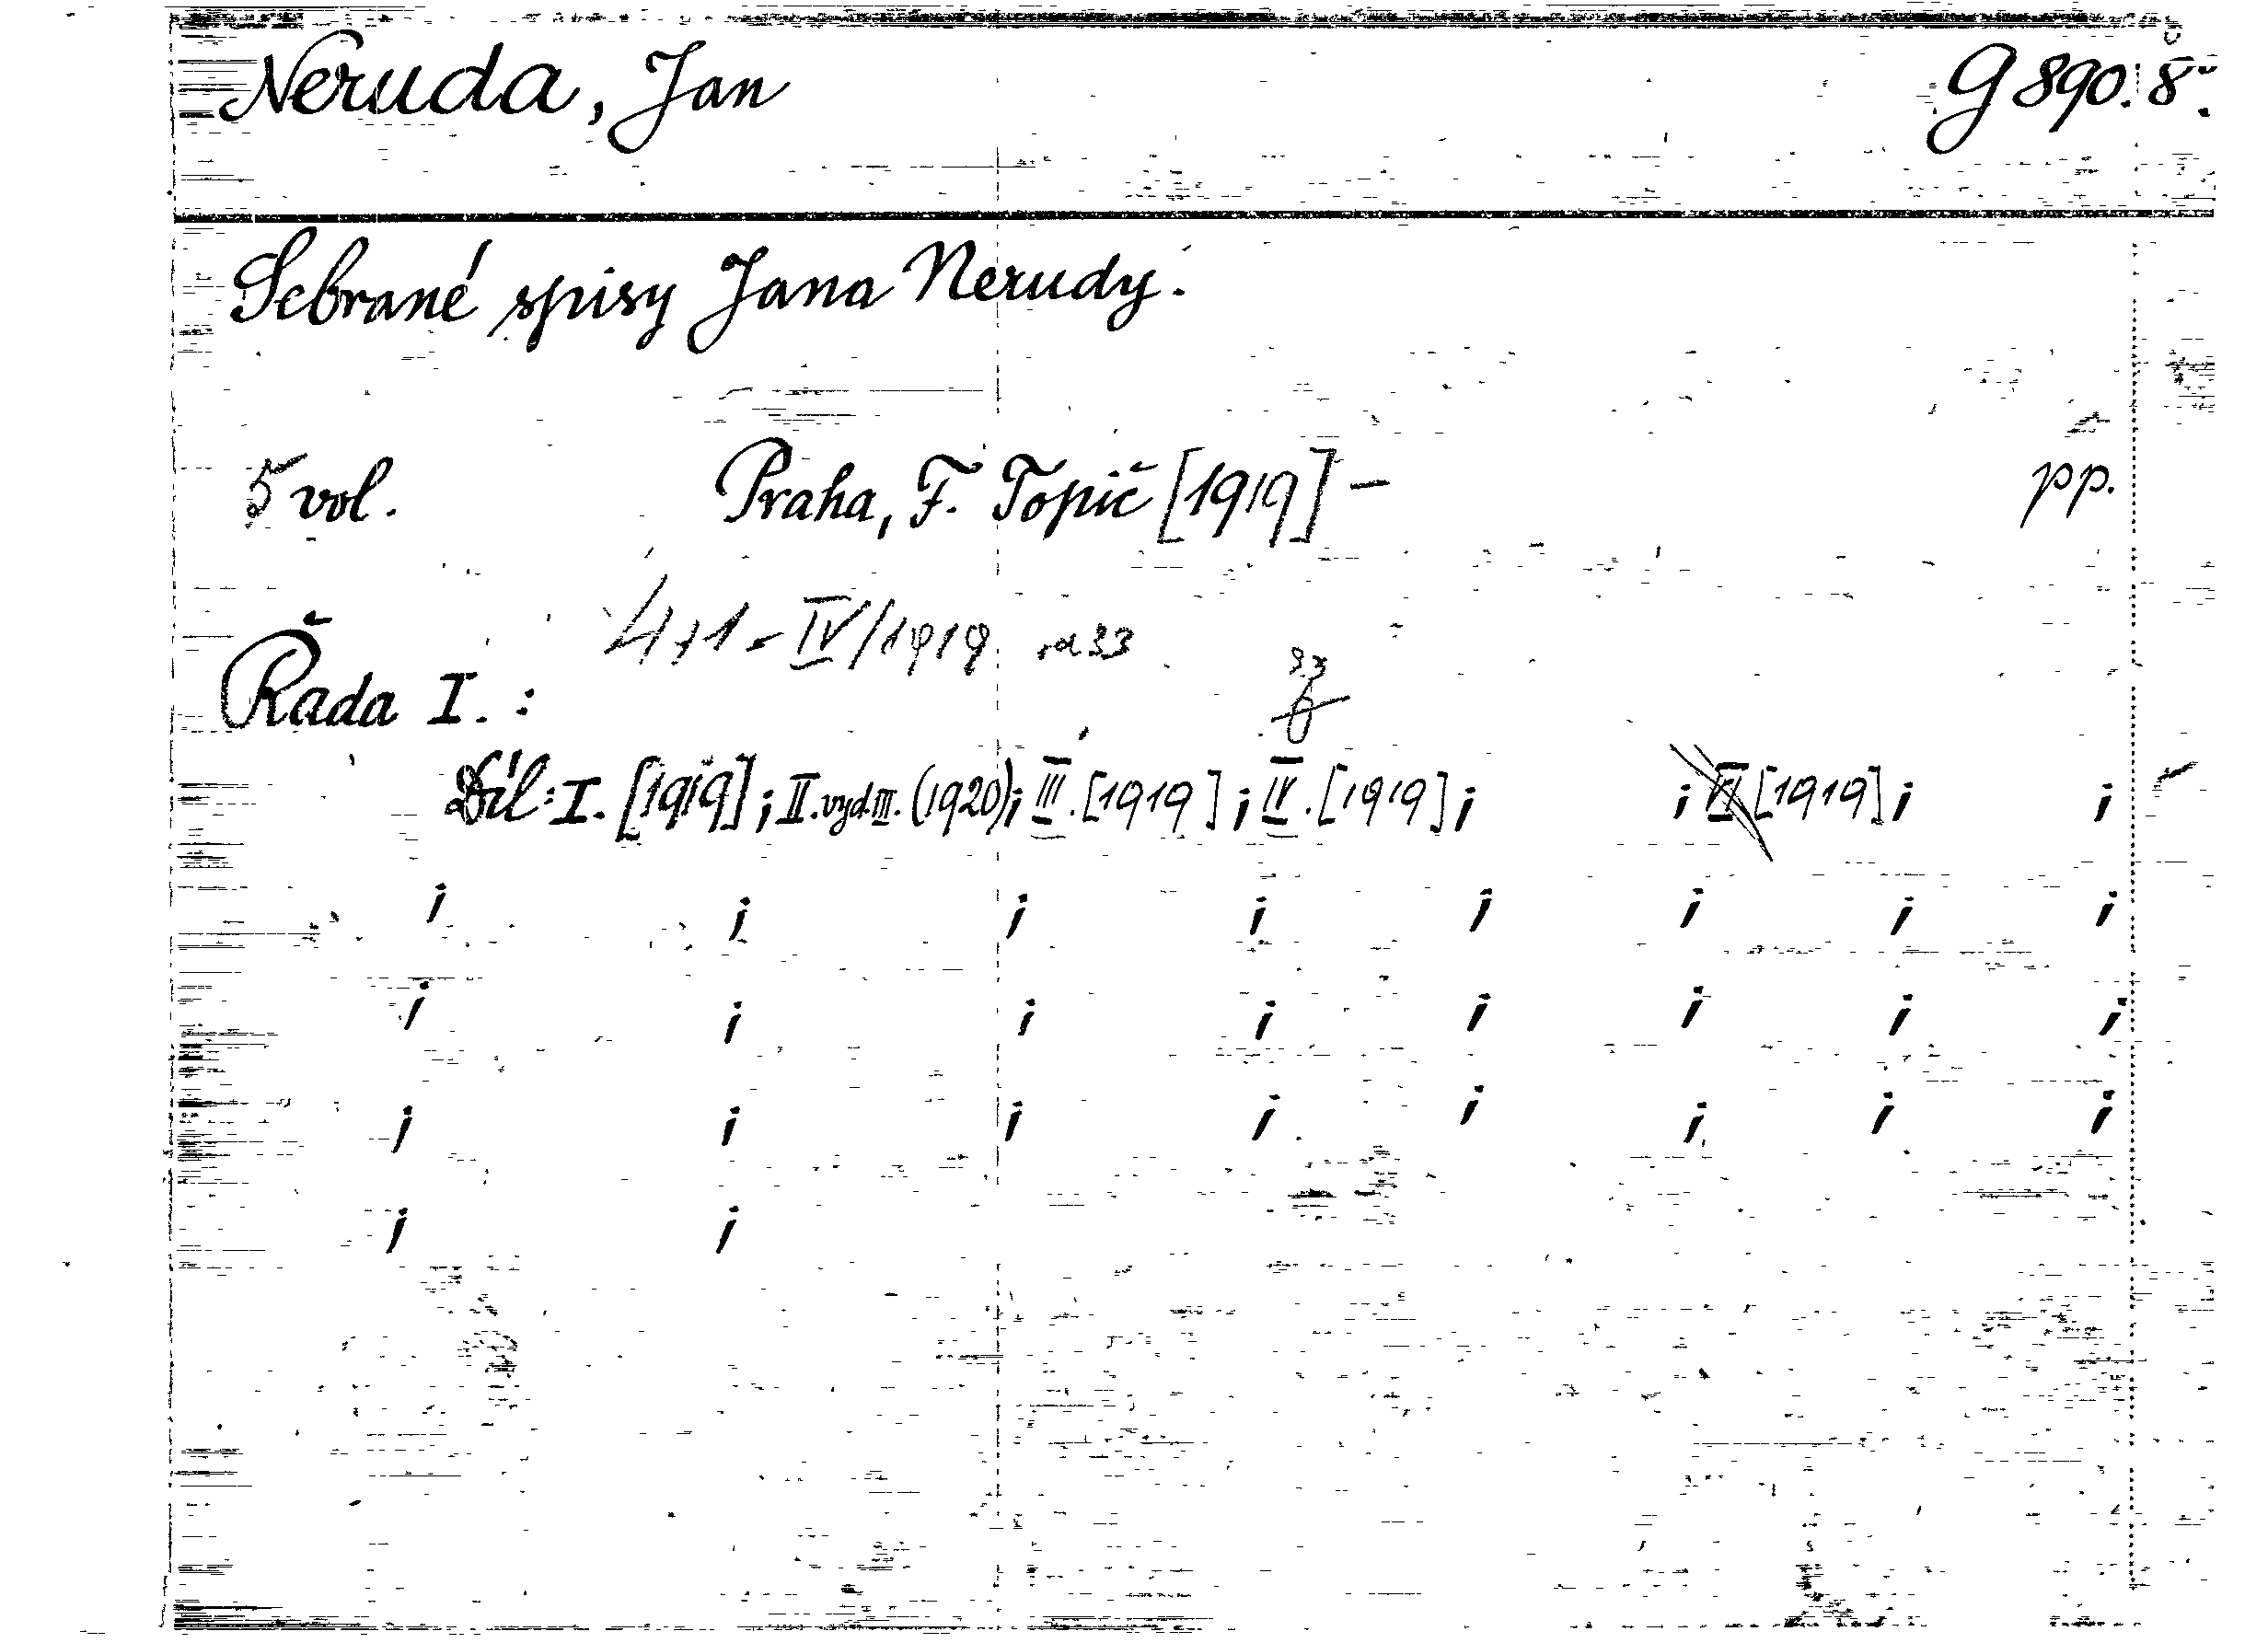 Neruda, Jan G 890. 8º.
Sebrané spisy Jana Nerudy.
5 vol. Praha, F. Topič [1919] – pp.
4+1 = IV/1919
Řada I. :
Díl: I. [1919]; II. vyd. III. (1920); III. [1919]; IV. [1919]; ; VI [1919]; ;
; ; ; ; ; ; ; ;
; ; ; ; ; ; ; ;
; ; ; ; ; ; ; ;
; ;